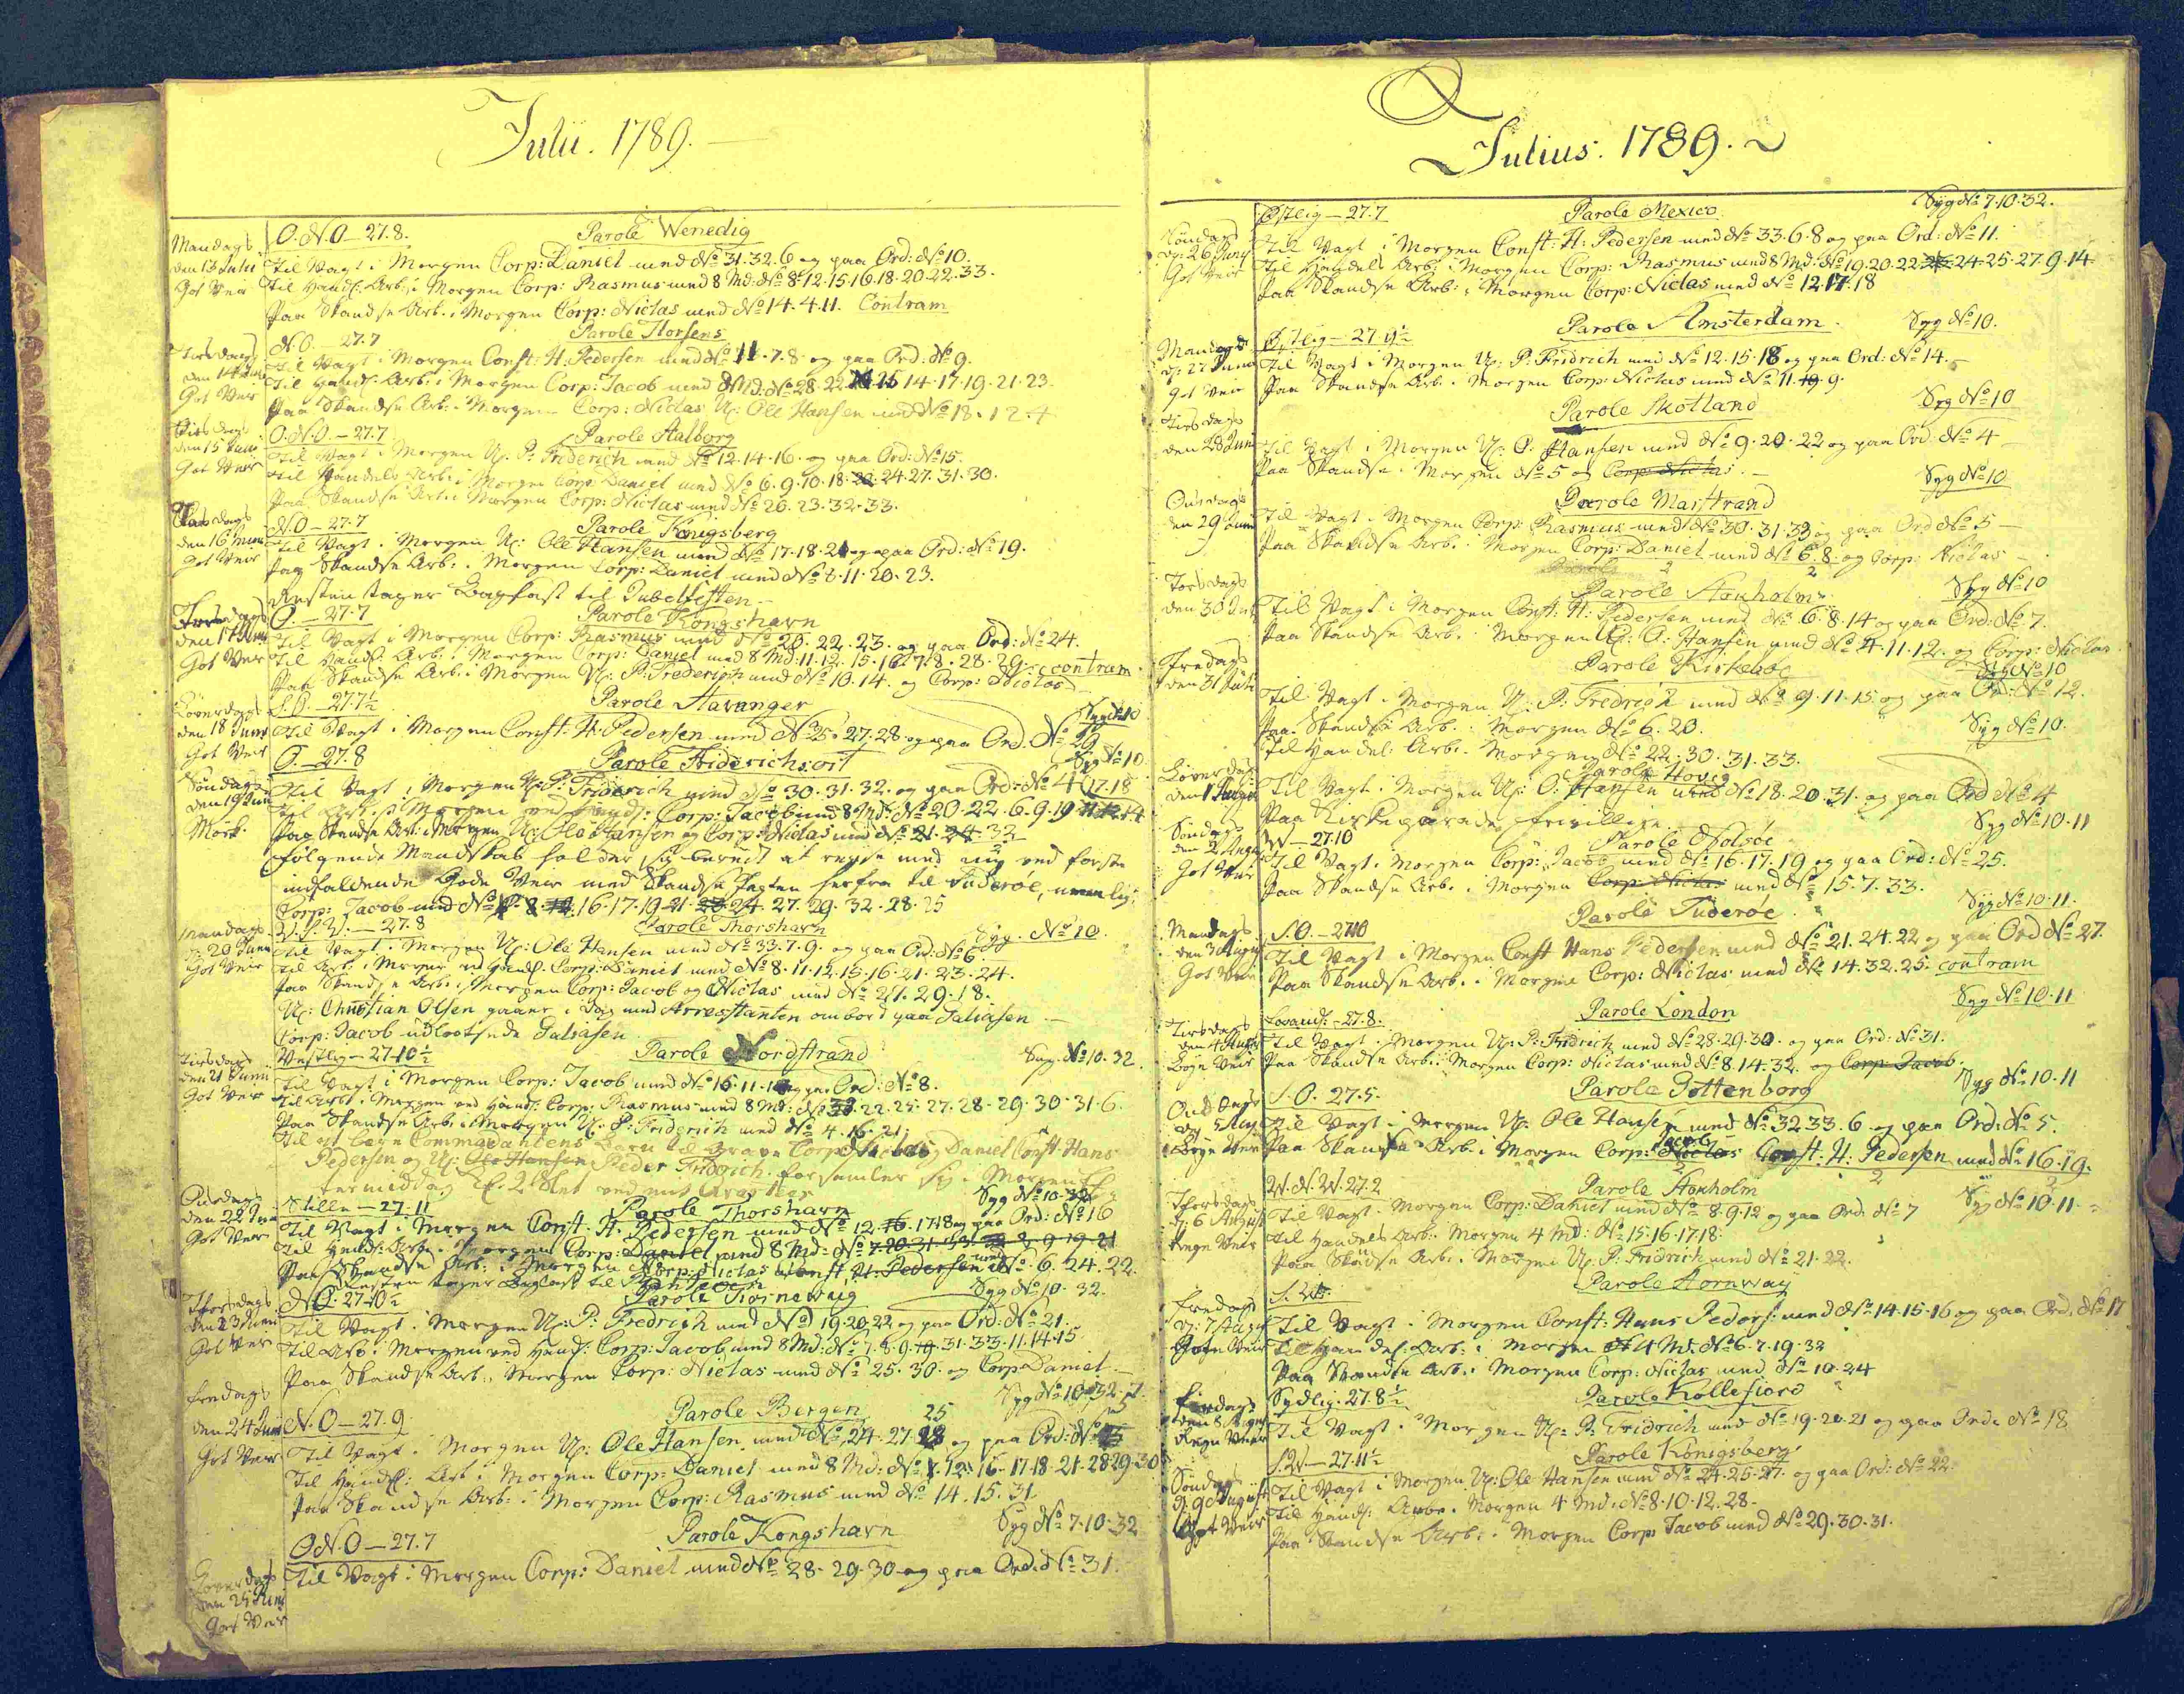 Julii. 1789.
Mandags den 13 Julii Got Veir
O.N.O — 27.8. Parole Wenedig
Til Vagt i Morgen Corp: Daniel med No 31.32.6 og paa Ord: No 10.
Til Handl: Arb: i Morgen Corp: Rasmus med 8 Md: No 8.12.15.16.18.20.22.33.
Paa Skandse Arb. i Morgen Corp: Niclas med No 14.4.11. Contram
Tirsdags den 14 Got Veir
N.O. — 27.7 Parole Horsens
Til Vagt i Morgen Const: H: Pedersen med No 11.7.8 og paa Ord: No 9.
Til Handl: Arb: i Morgen Corp: Jacob med 8 Md: No 28.22 14.17.19.21.23.
Paa Skandse Arb: i Morgen Corp: Niclas U: Ole Hansen med No 18.12.4
den 15 Got Veir
O.N.O. — 27.7 Parole Aalborg
Til Vagt i Morgen U: P: Friderich med No 12.14.16. og paa Ord: No 15.
Til Handels Arb: i Morgen Corp: Daniel med No 6.9.10.18.24.27.31.30.
Paa Skandse Arb: i Morgen Corp: Niclas med No 26.23.32.33.
den 16 Got Veir
N.O — 27.7 Parole Konigsberg
Til Vagt i Morgen U: Ole Hansen med No 17.18.21 og paa Ord: No 19.
Paa Skandse Arb. i Morgen Corp: Daniel med No 8.11.20.23.
Resten tager Bagfast til Jubelfesten —
den 17 Got Veir
O. — 27.7 Parole Kongshavn
Til Vagt i Morgen Corp: Rasmus med No 20.22.23. og paa Ord: No 24.
Til Handl: Arb. i Morgen Corp: Daniel med 8 Md: 11.12.15.16.7.8.28.29. contram.
Paa Skandse Arb: i Morgen U: P: Frederich med No 10.14. og Corp: Niclas
Løverdags den 18 Juni Got Veir
S.O. — 27.7½ Parole Stavanger
Til Vagt i Morgen Const: H: Pedersen med No 25.27.28 og paa Ord. No 29 Syg No 10
Søndags den 19 Juni Mørk.
O. — 27.8 Parole Friderichsort Syg No 10
Til Vagt i Morgen U: P: Friderich med No 30.31.32. og paa Ord: No 4
Til Arb: i Morgen ved Handl: Corp: Jacob med 8 Md: No 20.22.6.9.19
Paa Skandse Arb: i Morgen U: Ole Hansen og Corp: Niclas med No 21.24 32
Følgende Mandskab holder sig beredt at reyse med mig ved første
indfaldende Gode Veir med Skandse Jagten herfra til Suderøe, nemlig:
Corp: Jacob med No 16.17.19 27.29.32.28.25
Mandags d: 20 Juni Got Veir
V.S.V. — 27.8 Parole Thorshavn Syg No 10.
Til Vagt i Morgen U: Ole Hansen med No 33.7.9. og paa Ord: No 6.
Til Arb: i Morgen ved Handl: Corp: Daniel med No 8.11.12.15.16.21.23.24.
Paa Skandse Arb: i Morgen Corp: Jacob og Niclas med No 27.29.18.
U: Christian Olsen gaaer i Dag med Arrestanten ombord paa Galiasen —
Corp: Jacob udlootsede Galiasen
Tirsdags den 21 Junii Got Veir
Vestlig — 27.10½ Parole Nordstrand Syg No 10.32.
Til Vagt i Morgen Corp: Jacob med No 15.11.14 og paa Ord: No 8.
Til Arb: i Morgen ved Handl: Corp: Rasmus med 8 Md: No 22.25.27.28.29.30.31.6.
Paa Skandse Arb: i Morgen U: P: Friderich med No 4.16.21.
Til at bære Commendantens Barn til Grave Corp: Niclas og Daniel Const: Hans
Pedersen og U: Ole Hansen Peder Friderich. forsamler sig i Morgen Ef-
termiddag Kl. 2 Slet ved mit Qvarteer
den 22 Got Veir
Stille — 27.11 Parole Thorshavn Syg No 10.32
Til Vagt i Morgen Const: H: Pedersen med No 12.16.17.18 og paa Ord: No 10
Til Handl: Arb: i Morgen Corp: Daniel med 8 Md: No 7.20.31.
Paa Skandse Arb: i Morgen Corp: Niclas Const: H: Pedersen med No 6.24.22.
Resten tager Bagfast til
Thorsdags den 23 Juni Got Veir
N.O. 27.10½ Parole Kornevaig Syg No 10.32.
Til Vagt i Morgen U: P: Fredrich med No 19.20.22 og paa Ord: No 21.
Til Arb: i Morgen ved Handl: Corp: Jacob med 8 Md: No 7.8.9.10.31.33.11.14.15.
Paa Skandse Arb: i Morgen Corp: Niclas med No 25.30. og Corp Daniel —
Fredags den 24 Juni Got Veir
N.O — 27.9. Parole Bergen Syg No 10.32.7.
Til Vagt i Morgen U: Ole Hansen med No 24.27.25 og paa Ord: No
Til Handl: Arb: i Morgen Corp: Daniel med 8 Md: No 12.16.17.18.21.28.29.30
Paa Skandse Arb: i Morgen Corp: Rasmus med No 14.15.31
Løverdags den 25 Juni Got Veir
O.N.O — 27.7 Parole Kongshavn Syg No 7.10.32
Til Vagt i Morgen Corp: Daniel med No 28.29.30 og paa Ord. No 31.
Julius. 1789.
Søndags d: 26 Juni Got Veir
Østlig — 27.7 Parole Mexico Syg No 7.10.32.
Til Vagt i Morgen Const: H: Pedersen med No 33.6.8 og paa Ord: No 11.
Til Handels Arb: i Morgen Corp: Rasmus med 8 Md: No 19.20.22.24.25.27.9.14
Paa Skandse Arb: i Morgen Corp: Niclas med No 12.17.18
Mandags d: 27 Juni Got Veir
Østlig — 27.9½ Parole Amsterdam. Syg No 10.
Til Vagt i Morgen U: P: Fridrich med No 12.15.18 og paa Ord: No 14. —
Paa Skandse Arb. i Morgen Corp: Niclas med No 11.10.9.
Tirsdags den 28 Juni
Parole Skotland Syg No 10
Til Vagt i Morgen U: O. Hansen med No 9.20.22 og paa Ord: No 4 —
Paa Skandse i Morgen No 5 og Corp Niclas. —
Onsdags den 29 Juni
Parole Marstrand Syg No 10
Til Vagt i Morgen Corp: Rasmus med No 30.31.33 og paa Ord No 5 —
Paa Skandse Arb. i Morgen Corp: Daniel med No 6.8 og Corp: Niclas —
Torsdags den 30
Parole Stokholm Syg No 10
Til Vagt i Morgen Const: H: Pedersen med No 6.8.14 og paa Ord: No 7.
Paa Skandse Arb. i Morgen U: O: Hansen med No 4.11.12. og Corp: Niclas
Fredags den 31 Juli
Parole Kirkeböe Syg No 10
Til Vagt i Morgen U: P: Fredrich med No 9.11.15 og paa Ord: No 12.
Paa Skandse Arb. i Morgen No 6.20.
Til Handel. Arb. i Morgen No 22.30.31.33. Syg No 10.
Løverdags den 1 August
Parole Hovig
Til Vagt i Morgen U: O: Hansen med No 18.20.31. og paa Ord No 4
Paa Kirkeparade frivillige.
Søndags den 2 August Got Veir
W — 27.10 Parole Nolsöe Syg No 10.11
Til Vagt i Morgen Corp: Jacob med No 16.17.19 og paa Ord: No 25.
Paa Skandse Arb. i Morgen Corp Niclas med No 15.7.33.
Mandags den 3 August Got Veir
S.O. — 27.10 Parole Suderøe Syg No 10.11.
Til Vagt i Morgen Const Hans Pedersen med No 21.24.22 og paa Ord No 27.
Paa Skandse Arb. i Morgen Corp: Niclas med No 14.32.25. contram
Tirsdags den 4 August Regn Veir
— 27.8. Parole London Syg No 10.11
Til Vagt i Morgen U: P: Fridrich med No 28.29.30. og paa Ord: No 31.
Paa Skandse Arb. i Morgen Corp: Niclas med No 8.14.32. og Corp Jacob.
Onsdags d: 5 Aug Regn Veir
S.O. 27.5. Parole Gottenborg Syg No 10.11
Til Vagt i Morgen U: Ole Hansen med No 32.33.6 og paa Ord: No 5.
Paa Skandse Arb: i Morgen Corp: Niclas Jacob Const: H: Pedersen med No 16.19.
Thorsdags d: 6 August Regn Veir
W.N.W. 27.2 Parole Stokholm Syg No 10.11
Til Vagt i Morgen Corp: Daniel med No 8.9.12 og paa Ord: No 7
Til Handels Arb: i Morgen 4 Md: No 15.16.17.18.
Paa Skandse Arb. i Morgen U: P: Fridrich med No 21.22.
Fredags d: 7 Aug Regn Veir
S.W. Parole Kornwaij
Til Vagt i Morgen Const: Hans Peders: med No 14.15.16 og paa Ord. No 17
Til Handel: Arb: i Morgen 4 Md: No 6.7.19.32
Paa Skandse Arb. i Morgen Corp: Niclas med No 10.24
den 8 August Regn Veir
Sydlig. 27.8½ Parole Kollefiord
Til Vagt i Morgen U: P: Fridrich med No 19.20.21 og paa Ord: No 18
Søndags d: 9 August Got Veir
S.W — 27.11½ Parole Konigsberg
Til Vagt i Morgen U: Ole Hansen med No 24.25.27. og paa Ord: No 22.
Til Handl: Arb. i Morgen 4 Md: No 8.10.12.28.
Paa Skandse Arb. i Morgen Corp: Jacob med No 29.30.31.